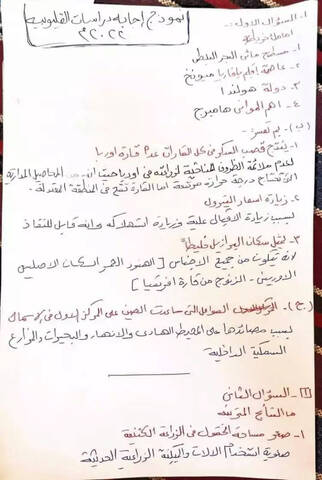 نموذج إجابة دراسات القليوبية
٢٠٢٢م
١- السؤال الأول:-
١- مسطح مائى البحر البلطى
٢- عاصمة إقليم بافاريا ميونخ
٣- دولة هولندا
٤- اهم الموانى هامبرج
(ب)- بم تفسر:-
١- ينتج قصب السكر فى كل القارات عدا قارة اوربا
لعدم ملائمة الظروف المناخية لزراعته فى اوربا حيث ان المحاصيل المدارية
التى تحتاج درجة حرارة مرتفعة اما القارة تقع فى المنطقة المعتدلة.
٢- زيادة اسعار البترول
بسبب زيادة الاقبال عليه وزيادة استهلاكه وانه قابل للنفاذ
٣- يمثل سكان البرازيل خليطاً
لانه يتكون من جميع الاجناس [الهنود الحمر السكان الاصليين
الاوربيين - الزنوج من قارة افريقيا]
(ج)- العوامل التى ساعدت الصين على المركز الاول فى الاسماك
بسبب مصائدها على المحيط الهادى والانهار والبحيرات والمزارع
السمكية الداخلية
٢- السؤال الثانى
ما النتائج المترتبة
١- صغر مساحة الحقول فى الزراعة الكثيفة
صعوبة استخدام الالات والميكنة الزراعية الحديثة